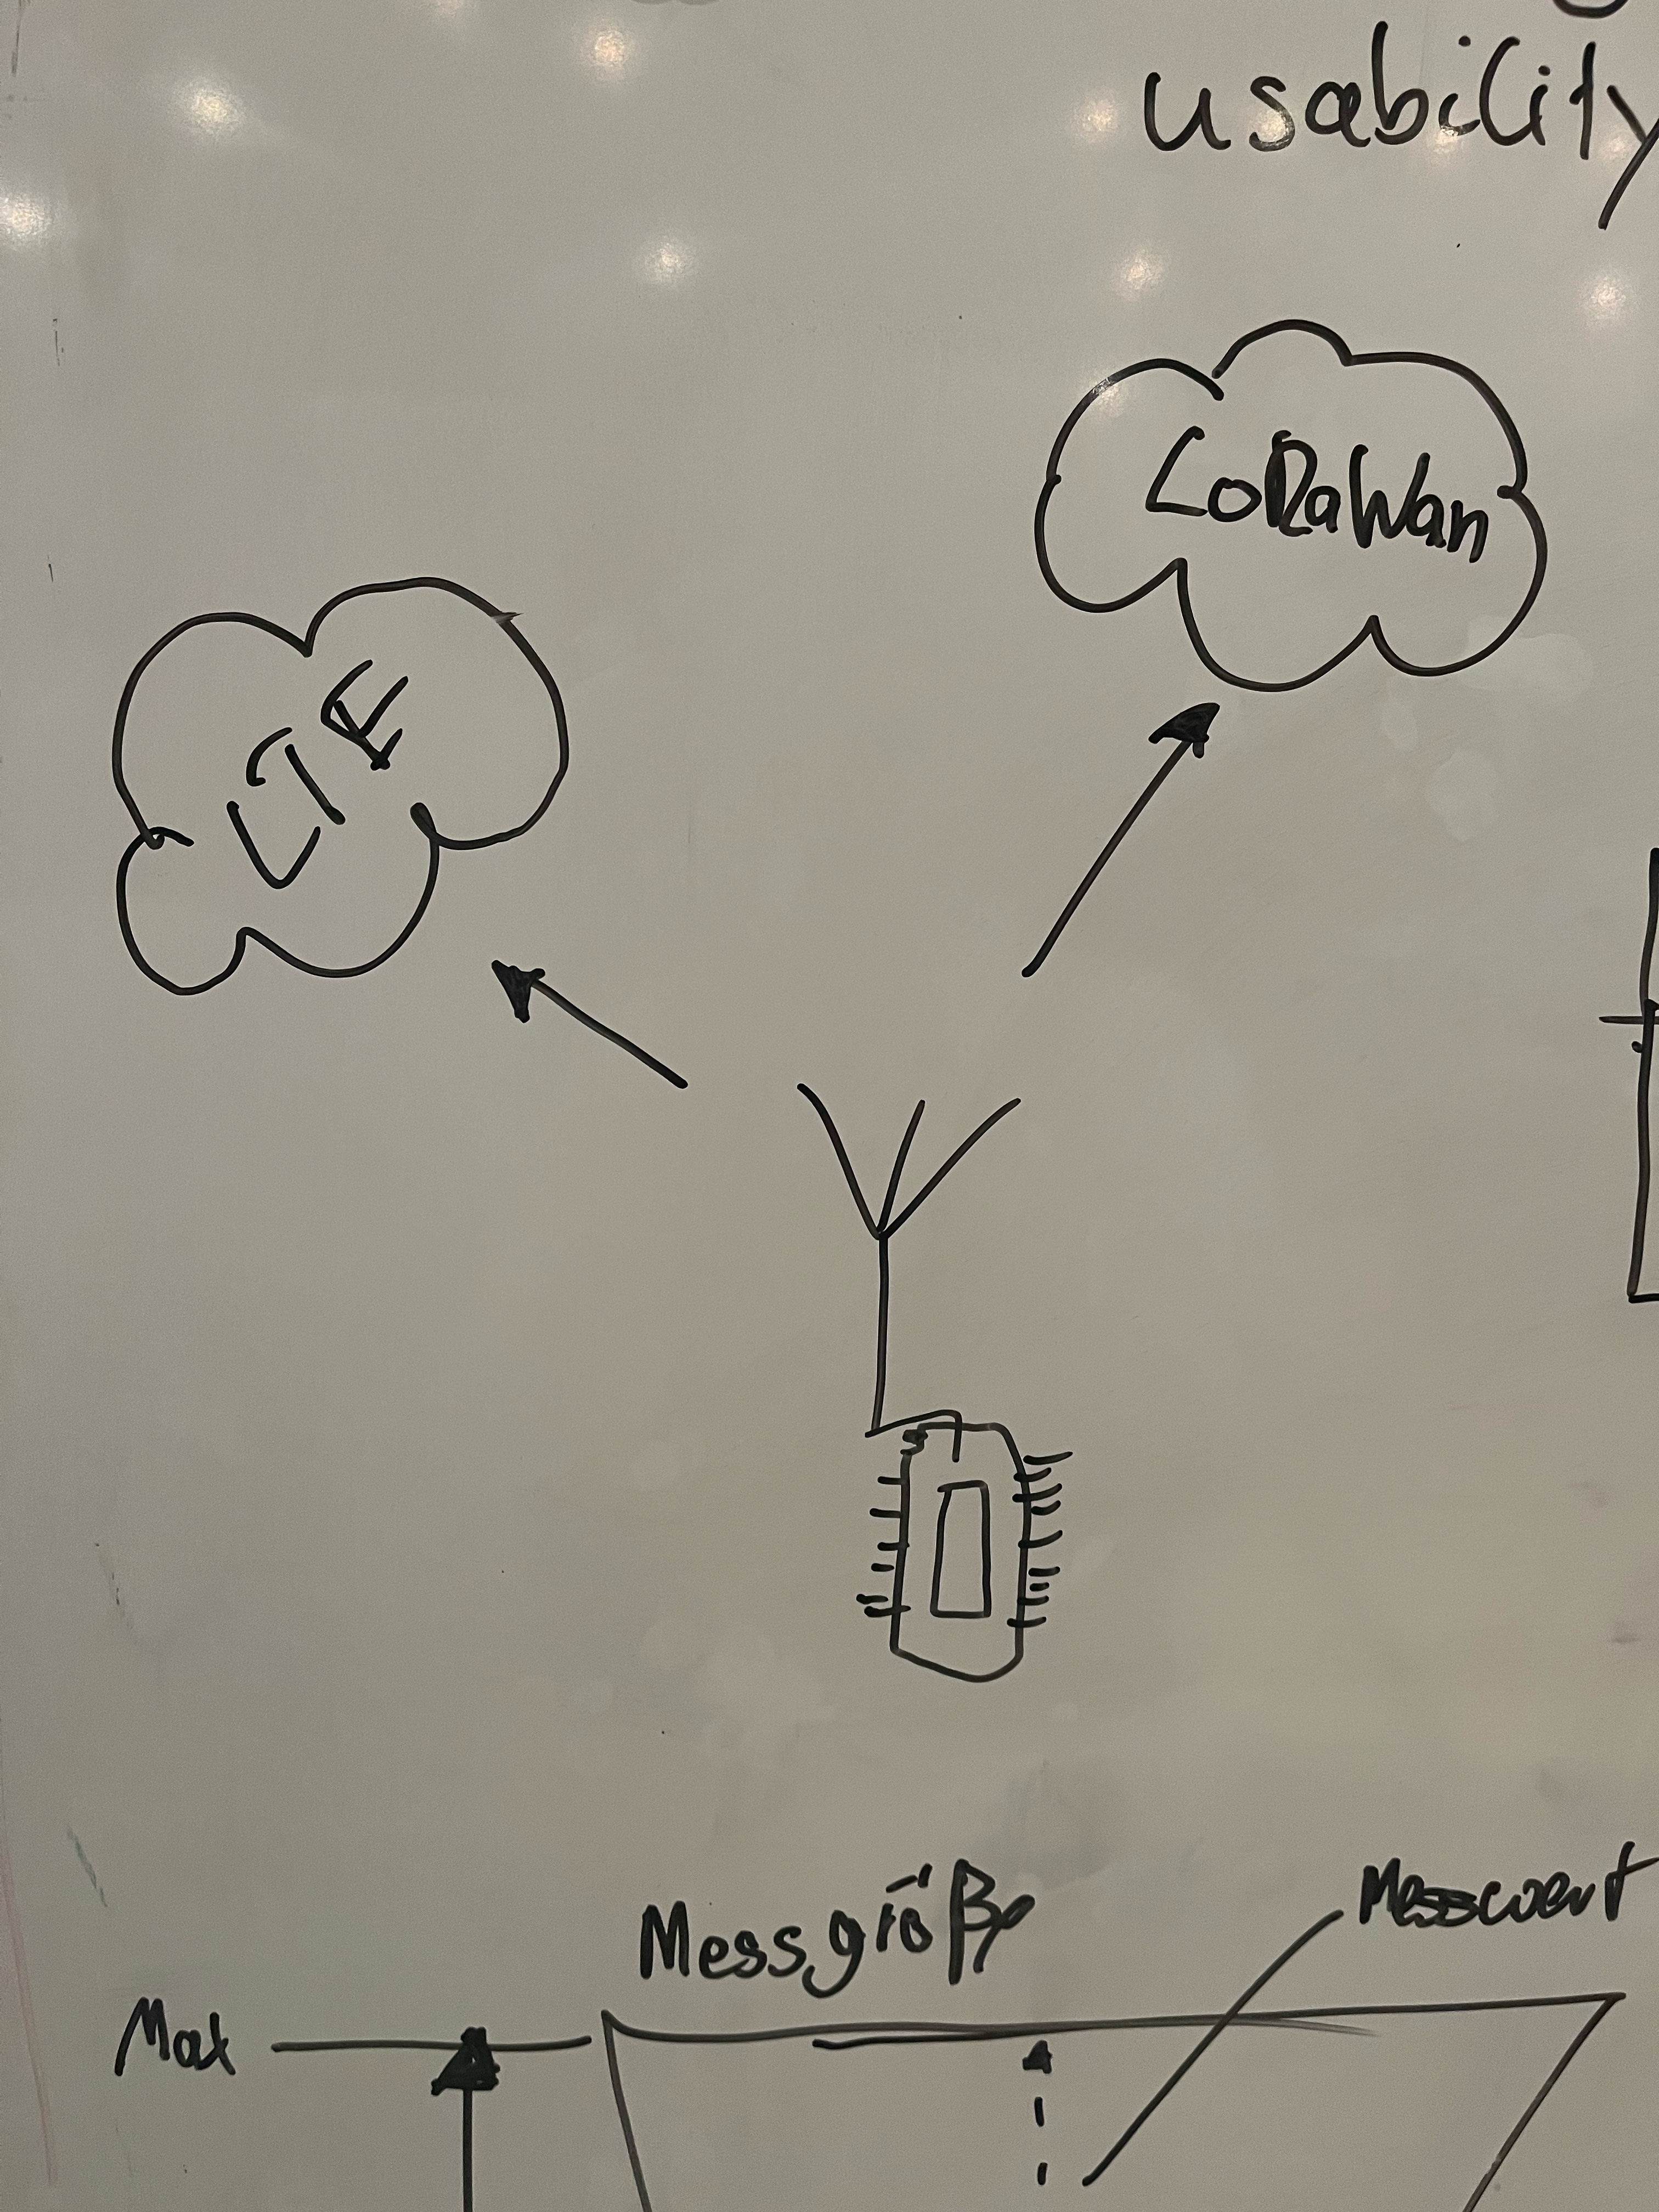 usability
LoRaWan
LTE
Messgröße
Messwert
Max